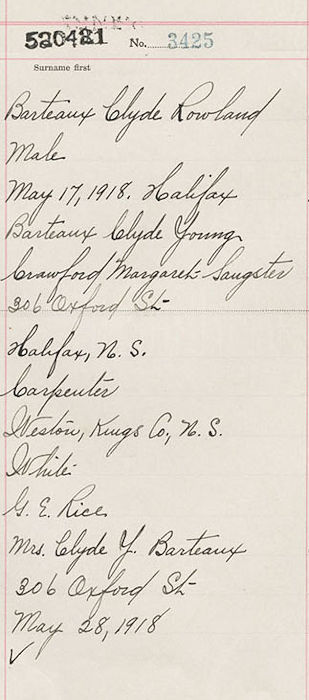 520421
No. 3425
Surname first
Barteaux Clyde Rowland
Male
May 17, 1918. Halifax
Barteaux Clyde Young
Crawford Margaret Sangster
306 Oxford St
Halifax, N. S.
Carpenter
Weston, Kings Co, N. S.
White
G. E. Rice
Mrs. Clyde Y. Barteaux
306 Oxford St
May 28, 1918
✓